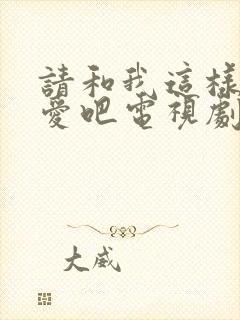 請和我這樣
愛吧電視劇
大威